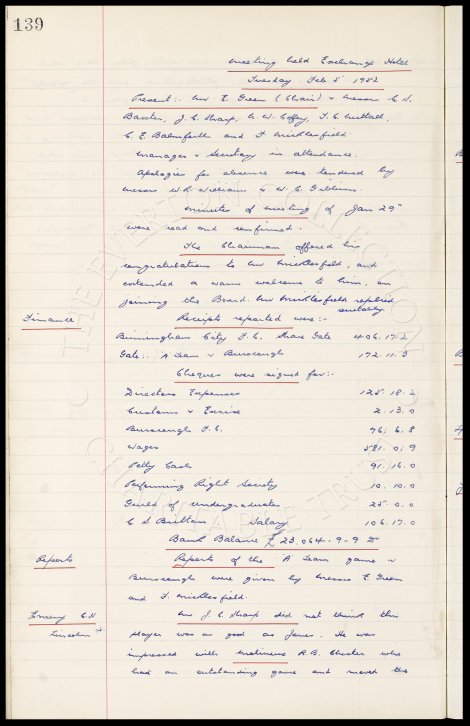 139
Meeting held Exchange Hotel
Tuesday Feb 5 1952
Present:- Mr E. Green (Chair) & Messrs C. S.
Baxter, J. C. Sharp, N. W. Coffey, T. C. Nuttall,
C. E. Balmforth and F. Micklesfield.
Manager & Secretary in attendance.
Apologies for absence were tendered by
Messrs W. R. Williams & W. C. Gibbins.
Minutes of meeting of Jan 29th
were read and confirmed.
The Chairman offered his
congratulations to Mr Micklesfield, and
extended a warm welcome to him, on
joining the Board. Mr Micklesfield replied
suitably.
Finance
Receipts reported were:-
Birmingham City F.C. Share Gate 406.17.2
Gate:- A Team v Burscough 172.11.3
Cheques were signed for:-
Directors Expenses 125.18.2
Customs & Excise 2.13.0
Burscough F.C. 76.6.8
Wages 581.0.9
Petty Cash 91.16.0
Performing Right Society 10.10.0
Guild of Undergraduates 25.0.0
C S Britton Salary 106.17.0
Bank Balance £23,064-9-9 Dr
Reports
Reports of the 'A' Team game v
Burscough were given by Messrs E Green
and F. Micklesfield.
Emery C.H
Lincoln
Mr J. C. Sharp did not think this
player was as good as Jones. He was
impressed with Molineux R.B. Chester who
had an outstanding game and moved the
© THE EVERTON COLLECTION
CHARITABLE TRUST